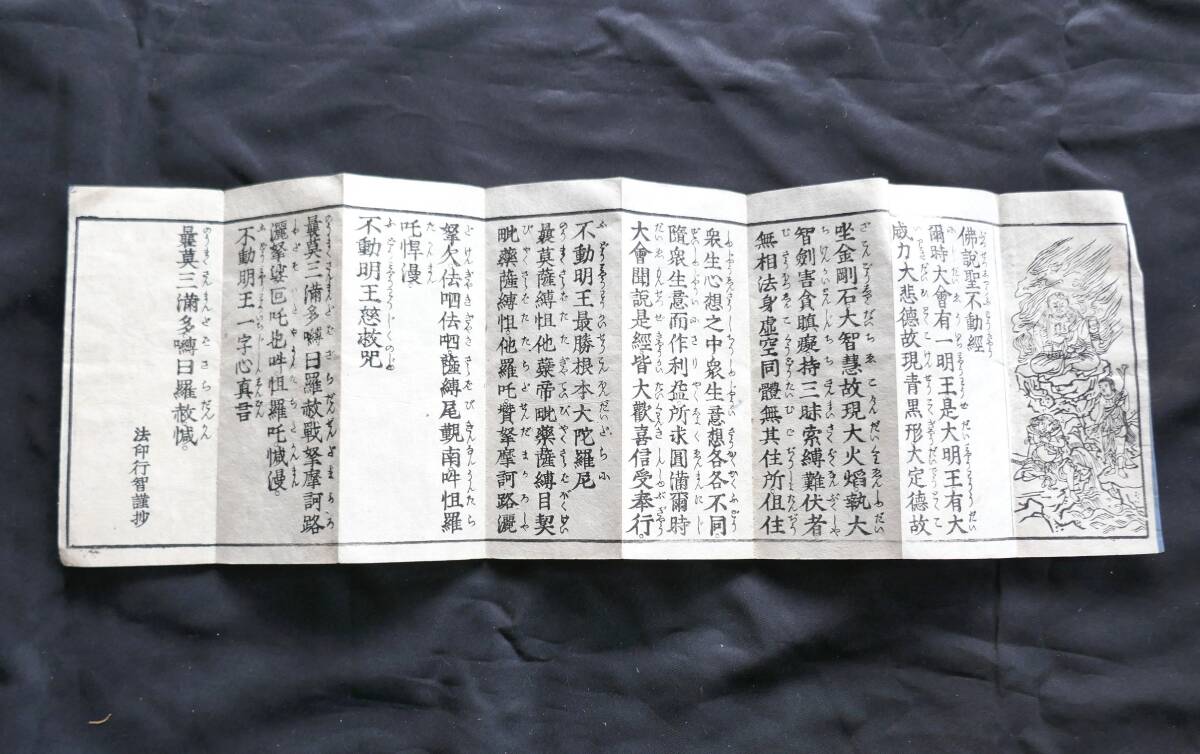 佛說聖不動經
爾時大會有一明王是大明王有大
威力大悲德故現青黑形大定德故
坐金剛石大智慧故現大火熖執大
智劍害貪瞋癡持三昧索縛難伏者
無相法身虛空同體無其住所但住
衆生心想之中衆生意想各各不同
隨衆生意而作利益所求圓滿爾時
大會聞說是經皆大歡喜信受奉行
不動明王最勝根本大陀羅尼
曩莫薩縛怛他蘖帝毗藥薩縛目契
毗藥薩縛怛他羅吒贊拏摩訶路灑
拏欠佉呬佉呬薩縛尾覲南吽怛羅
吒悍漫
不動明王慈救咒
曩莫三滿多嚩日羅赦戰拏摩訶路
灑拏娑叵吒也吽怛羅吒憾漫
不動明王一字心真言
曩莫三滿多嚩日羅赦憾
法印行智謹抄